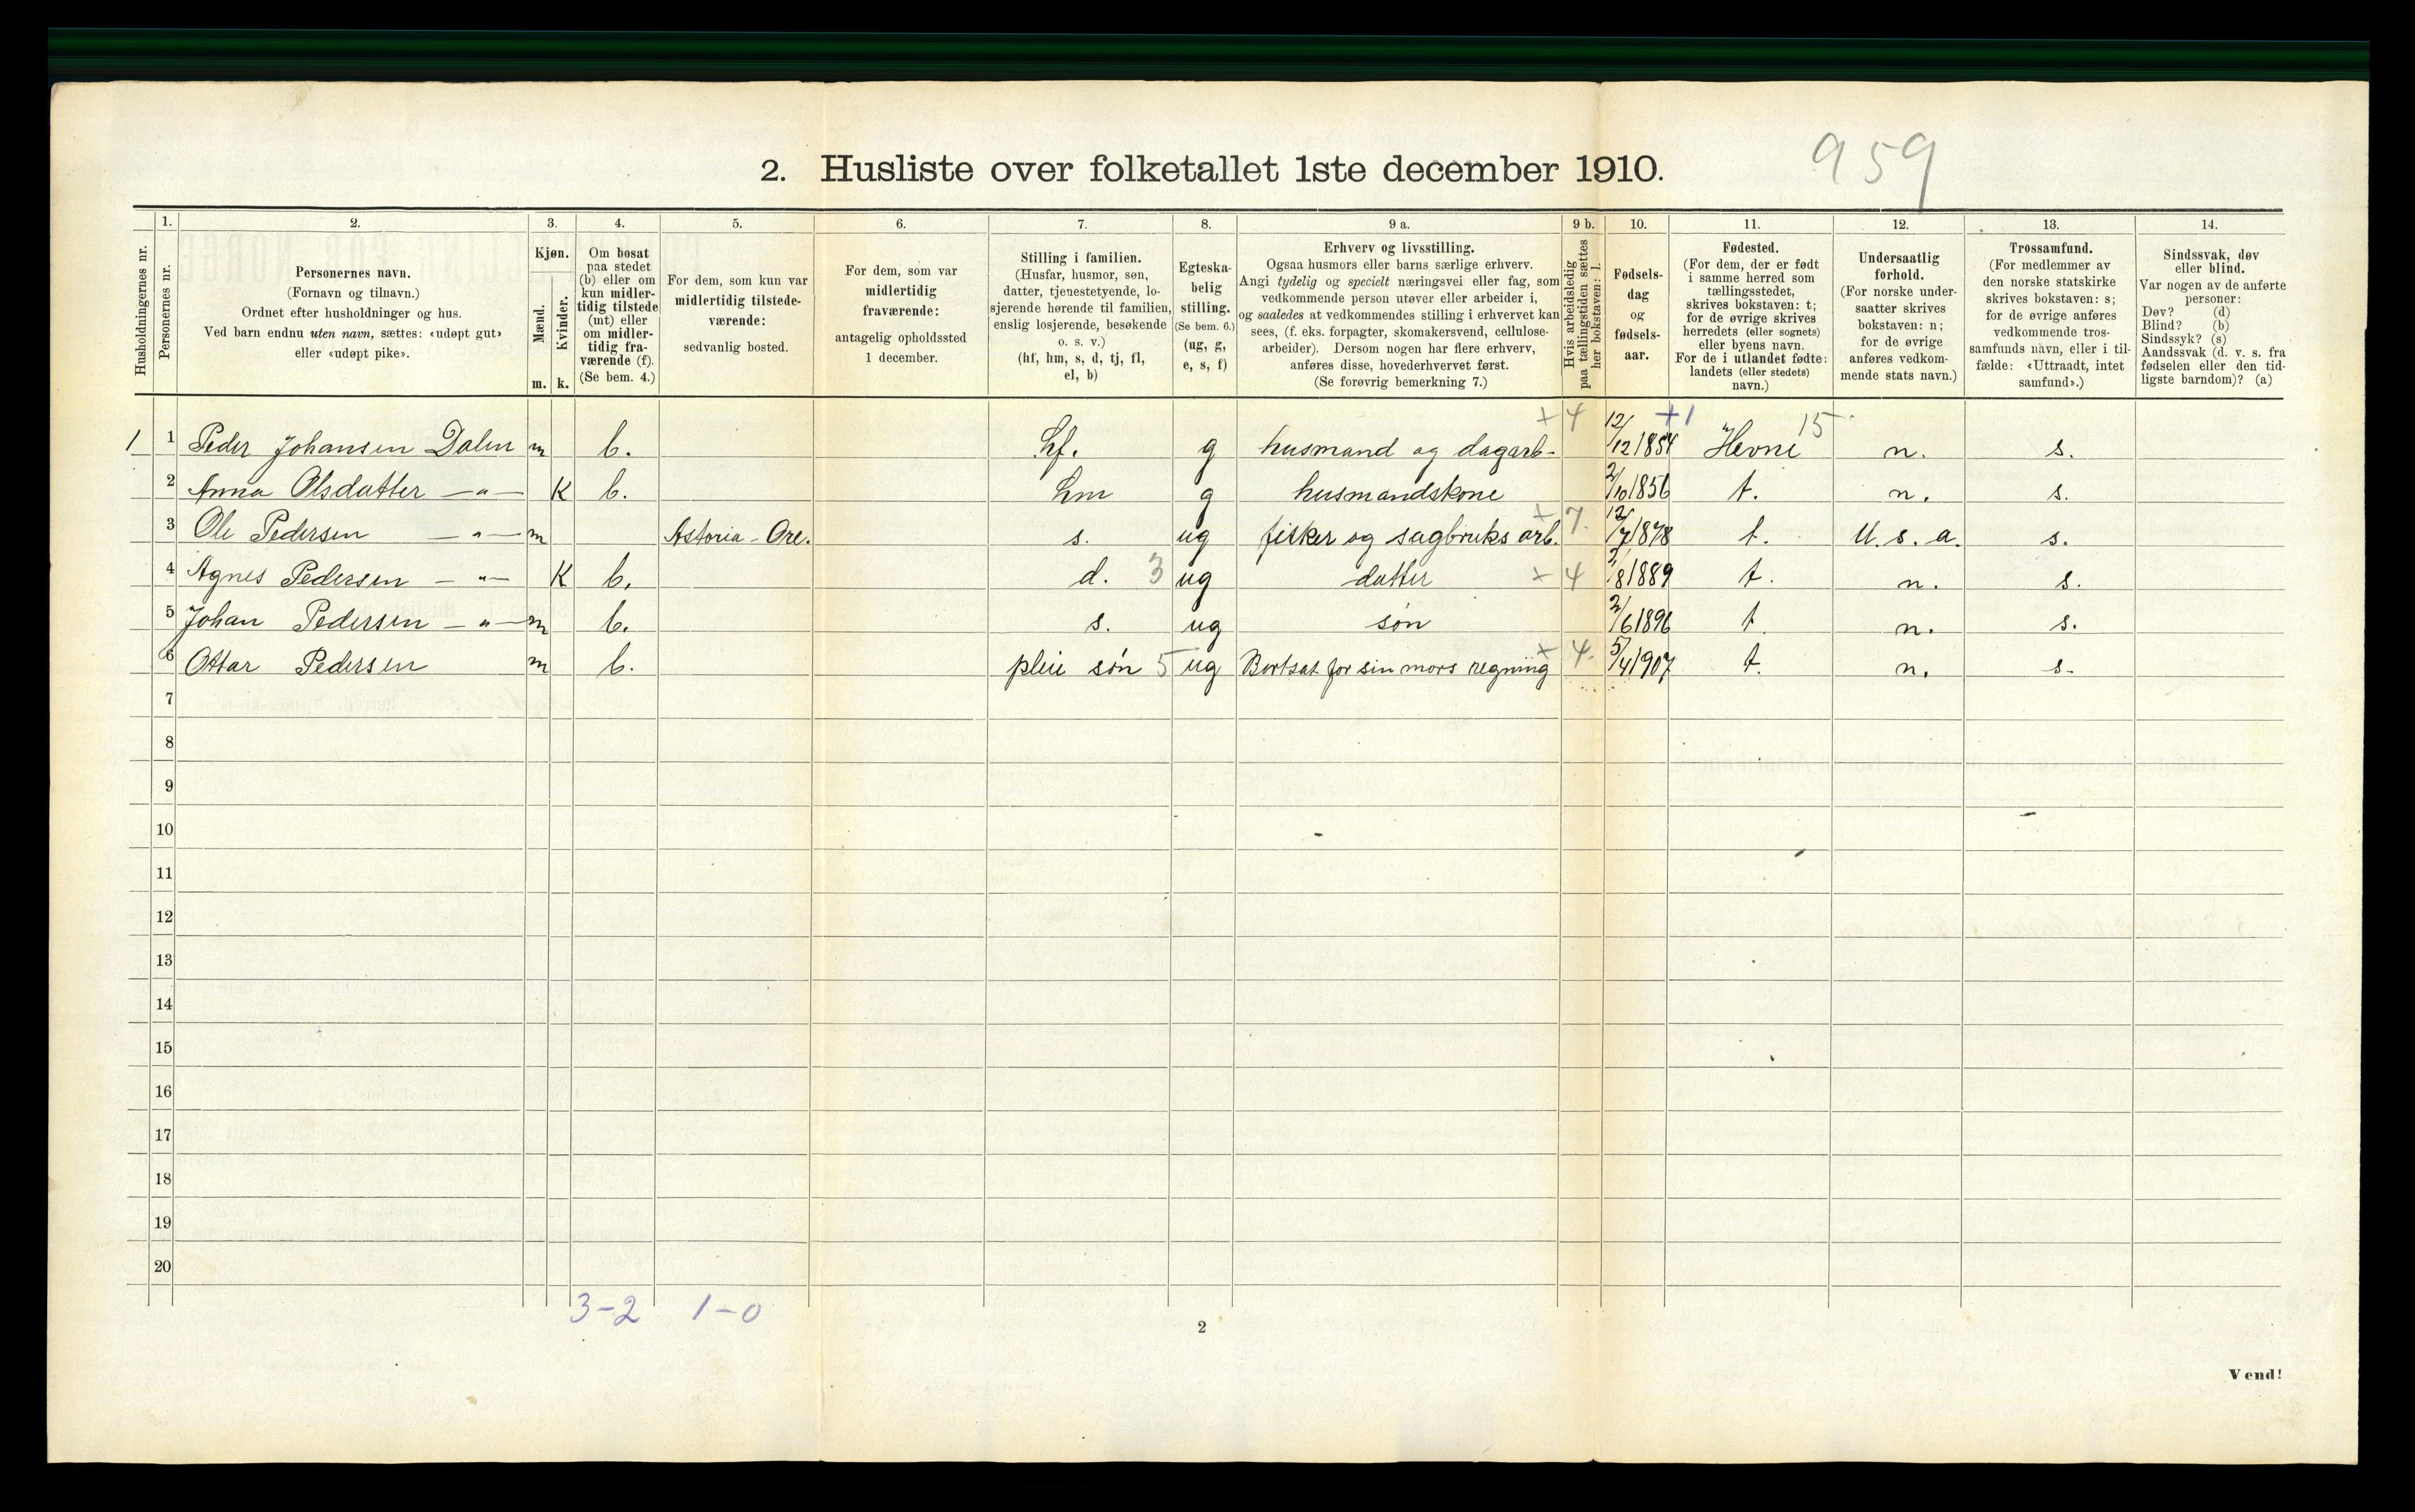 959
2. Husliste over folketallet 1ste december 1910.
Husholdningernes nr.
1.
Personernes nr.
2.
Personernes navn.
(Fornavn og tilnavn.)
Ordnet efter husholdninger og hus.
Ved barn endnu uten navn, sættes: «udøpt gut»
eller «udøpt pike».
3.
Kjøn.
Mænd.
Kvinder.
m. k.
4.
Om bosat
paa stedet
(b) eller om
kun midler-
tidig tilstede
(mt) eller
om midler-
tidig fra-
værende (f).
(Se bem. 4.)
5.
For dem, som kun var
midlertidig tilstede-
værende:
sedvanlig bosted.
6.
For dem, som var
midlertidig
fraværende:
antagelig opholdssted
1 december.
7.
Stilling i familien.
(Husfar, husmor, søn,
datter, tjenestetyende, lo-
sjerende hørende til familien,
enslig losjerende, besøkende
o. s. v.)
(hf, hm, s, d, tj, fl,
el, b)
8.
Egteska-
belig
stilling.
(Se bem. 6.)
(ug, g,
e, s, f)
9 a.
Erhverv og livsstilling.
Ogsaa husmors eller barns særlige erhverv.
Angi tydelig og specielt næringsvei eller fag, som
vedkommende person utøver eller arbeider i,
og saaledes at vedkommendes stilling i erhvervet kan
sees, (f. eks. forpagter, skomakersvend, cellulose-
arbeider). Dersom nogen har flere erhverv,
anføres disse, hovederhvervet først.
(Se forøvrig bemerkning 7.)
9 b.
Hvis arbeidsledig
paa tællingstiden sættes
her bokstaven: l.
10.
Fødsels-
dag
og
fødsels-
aar.
11.
Fødested.
(For dem, der er født
i samme herred som
tællingsstedet,
skrives bokstaven: t;
for de øvrige skrives
herredets (eller sognets)
eller byens navn.
For de i utlandet fødte:
landets (eller stedets)
navn.)
12.
Undersaatlig
forhold.
(For norske under-
saatter skrives
bokstaven: n;
for de øvrige
anføres vedkom-
mende stats navn.)
13.
Trossamfund.
(For medlemmer av
den norske statskirke
skrives bokstaven: s;
for de øvrige anføres
vedkommende tros-
samfunds navn, eller i til-
fælde: «Uttraadt, intet
samfund».)
14.
Sindssvak, døv
eller blind.
Var nogen av de anførte
personer:
Døv? (d)
Blind? (b)
Sindssyk? (s)
Aandssvak (d. v. s. fra
fødselen eller den tid-
ligste barndom)? (a)
1 1 Peder Johansen Dalen m b. hf. g husmand og dagarb. + 4 12/12 1854 +1 Hevne 15 n. s.
2 Anna Olsdatter —„— K b. hm g husmandskone 2/10 1856 t. n. s.
3 Ole Pedersen —„— m Astoria - Ore. s. ug fisker og sagbruks arb. + 7. 12/7 1878 t. U. s. a. s.
4 Agnes Pedersen —„— K b. d. 3 ug datter + 4 /8 1889 t. n. s.
5 Johan Pedersen —„— m b. s. ug søn 2/6 1896 t. n. s.
6 Ottar Pedersen m b. pleie søn 5 ug Bortsat for sin mors regning + 4. 5/4 1907 t. n. s.
7
8
9
10
11
12
13
14
15
16
17
18
19
20
3-2 1-0
2
Vend!